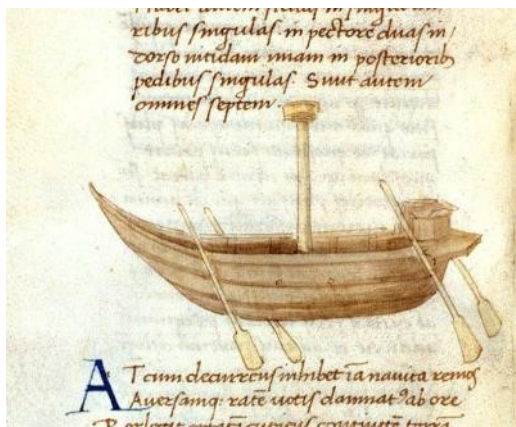 ribus singulas. in pectore duas in
dorso nitidam unam in posteriorib
pedibus singulas. Sunt autem
omnes septem.
AT cum decurrens inhibet iã navita remos
Aversamq: rate votis damnat ab ore